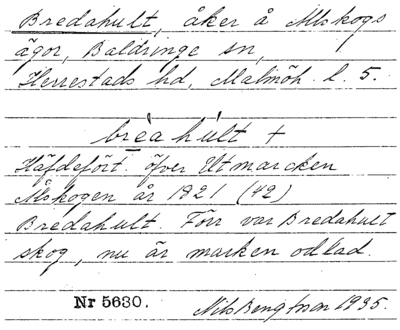 Bredahult, åker å Allskogs
ägor, Baldringe sn,
Herrestads hd, Malmöh. l. 5.
brèa hu̇lt +
Häfdefört. öfver Utmarcken
Allskogen år 1821 (42)
Bredahult. Förr var Bredahult
skog, nu är marken odlad.
Nr 5630.
Nils Bengtsson 1935.